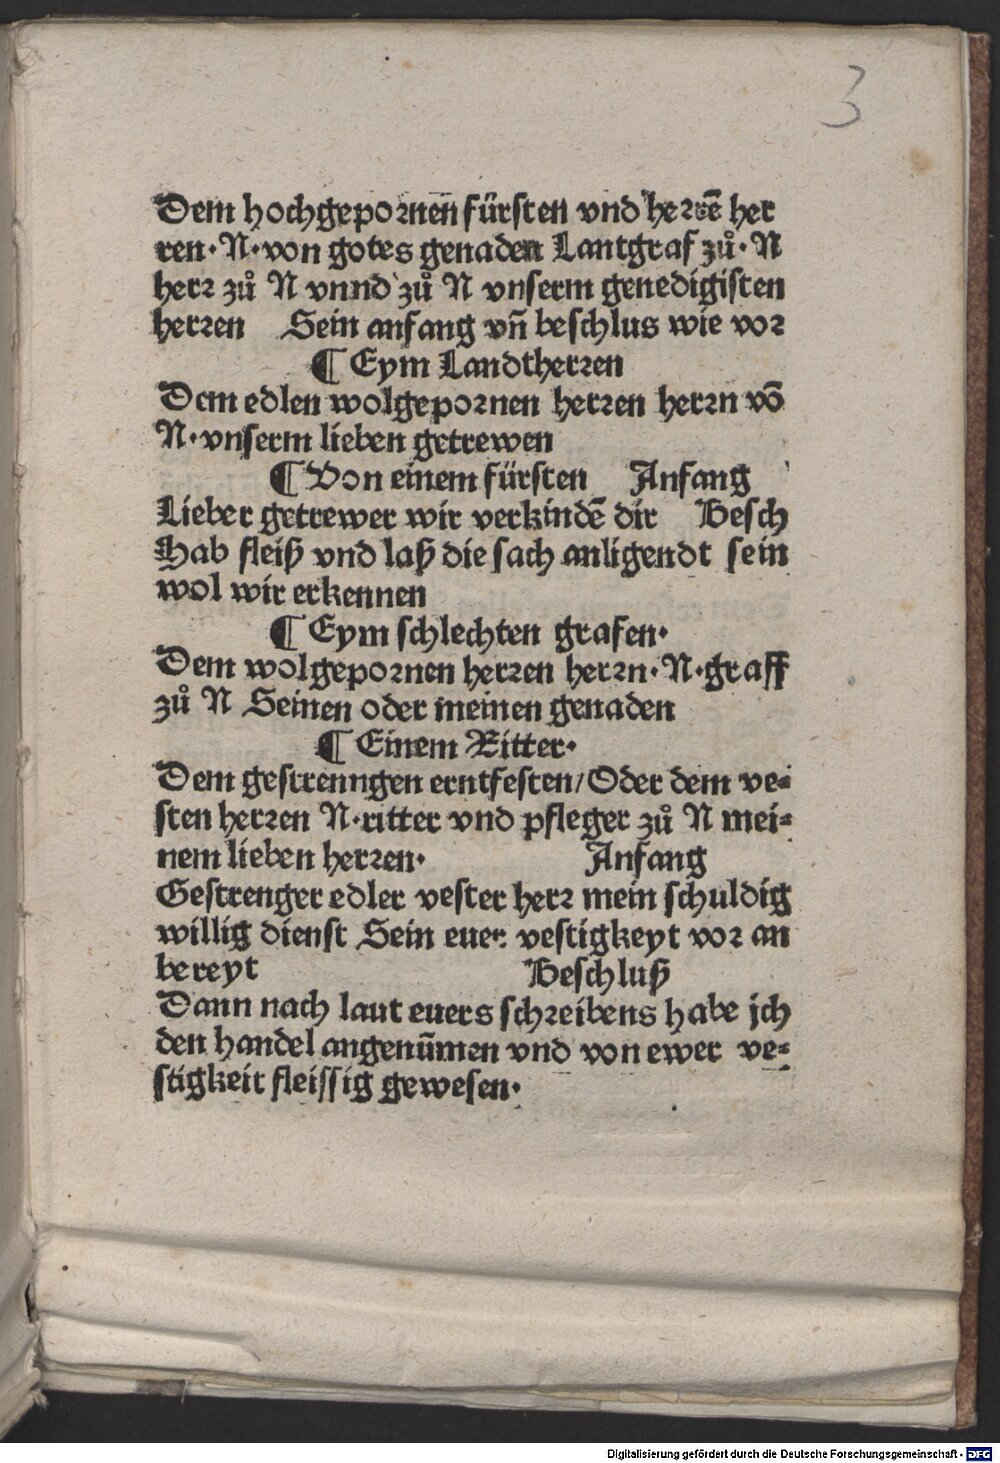 3
Dem hochgepornen fürsten vnd herrē her
ren· N· von gotes genaden Lantgraf zů· N
herr zů N vnnd zů N vnserm genedigisten
herren Sein anfang vn̄ beschlus wie vor
¶ Eym Landtherren
Dem edlen wolgepornen herren herrn vō
N· vnserm lieben getrewen
¶ Von einem fürsten Anfang
Lieber getrewer wir verkindē dir Besch
Hab fleiß vnd laß die sach anligendt sein
wol wir erkennen
¶ Eym schlechten grafen·
Dem wolgepornen herren herrn· N· graff
zů N Seinen oder meinen genaden
¶ Einem Ritter·
Dem gestrenngen erntfesten/ Oder dem ve⸗
sten herren N· ritter vnd pfleger zů N mei⸗
nem lieben herren· Anfang
Gestrenger edler vester herr mein schuldig
willig dienst Sein euer vestigkeyt vor an
bereyt Beschluß
Dann nach laut euers schreibens habe jch
den handel angenūmen vnd von ewer ve⸗
stigkeit fleissig gewesen·
Digitalisierung gefördert durch die Deutsche Forschungsgemeinschaft - DFG